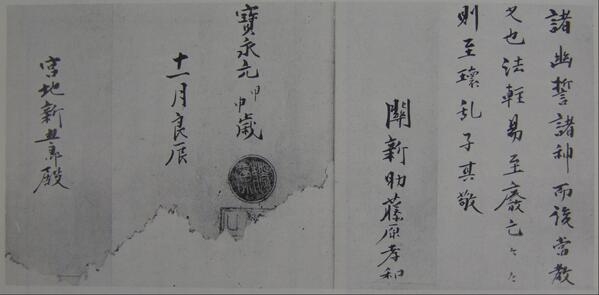 諸幽誓諸神而後當教
之也法軽易至廢亡々々
則至壞乱子其敬
關新助藤原孝和
寶永元甲申歳
十一月良辰
宮地新五郎殿